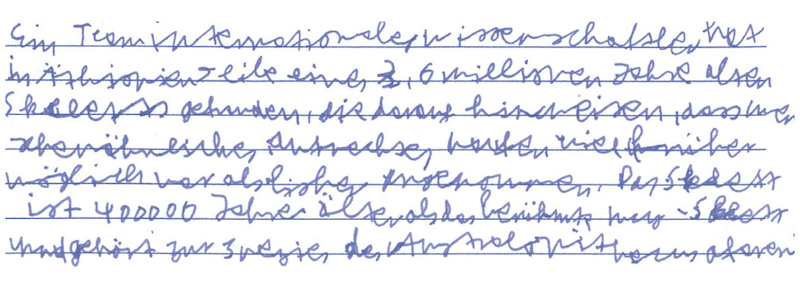 Ein Team internationaler wissenschaftler hat
in Äthiopien Teile eines 3,6 millionen Jahre alten
Skeletts gefunden, die darauf hinweisen, dass
aufrechter früher
möglich war als bisher angenommen. Das Skelett
ist 400000 Jahre älter als das berühmte Skelett
und gehört zur Spezies des Australopithecus afaren